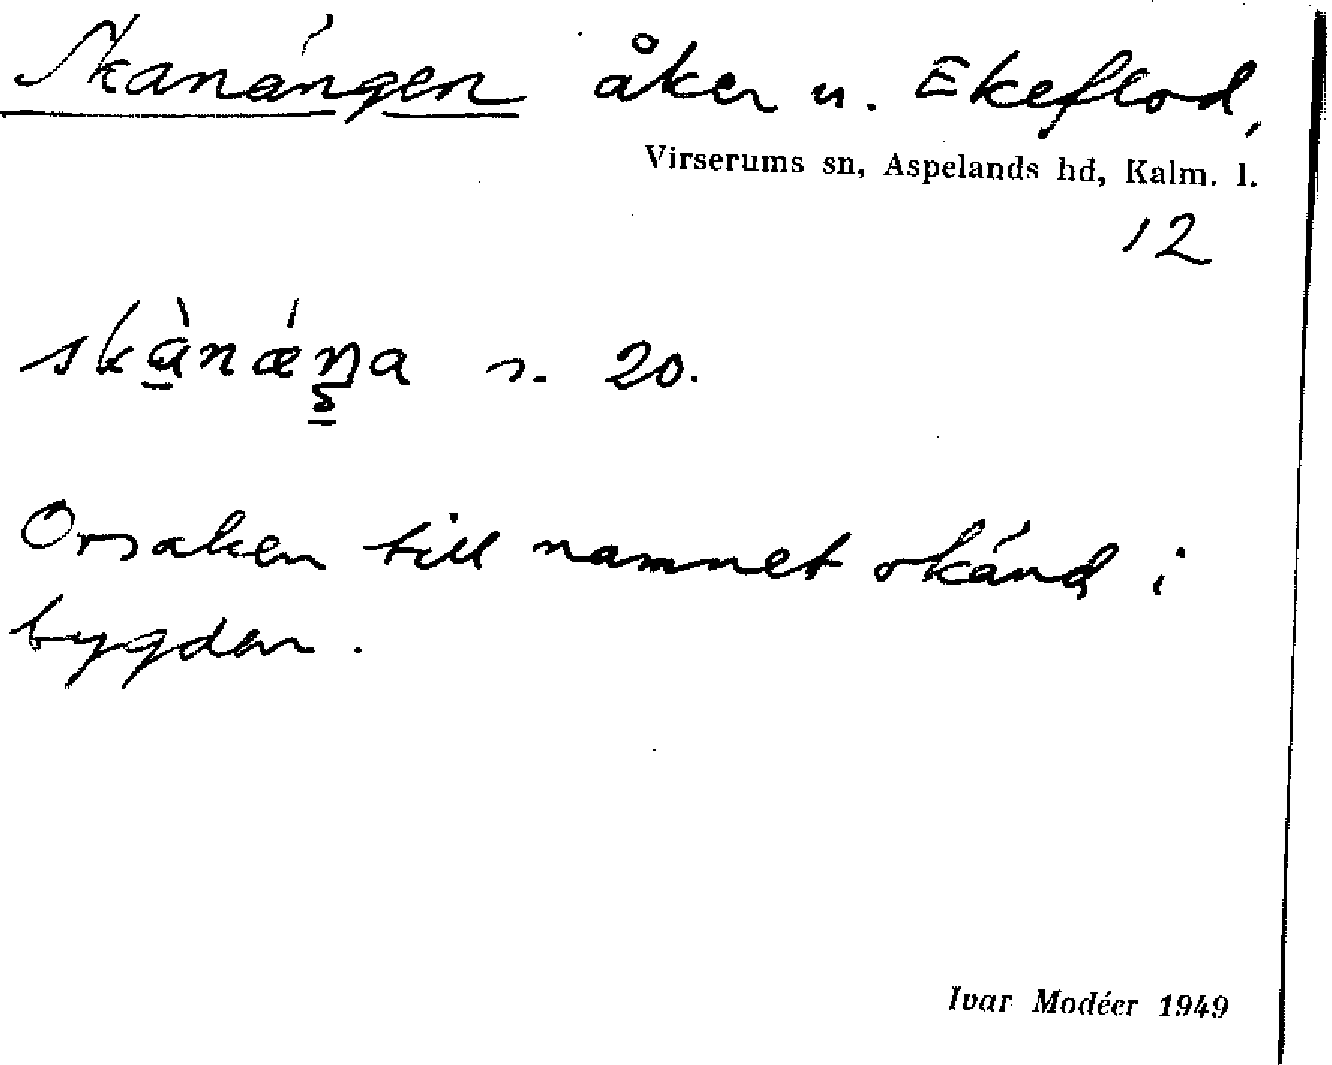 Skanängen åker u. Ekeflod,
Virserums sn, Aspelands hd, Kalm. l.
12
skànǽŋa s. 20.
Orsaken till namnet okänd i
bygden.
Ivar Modéer 1949